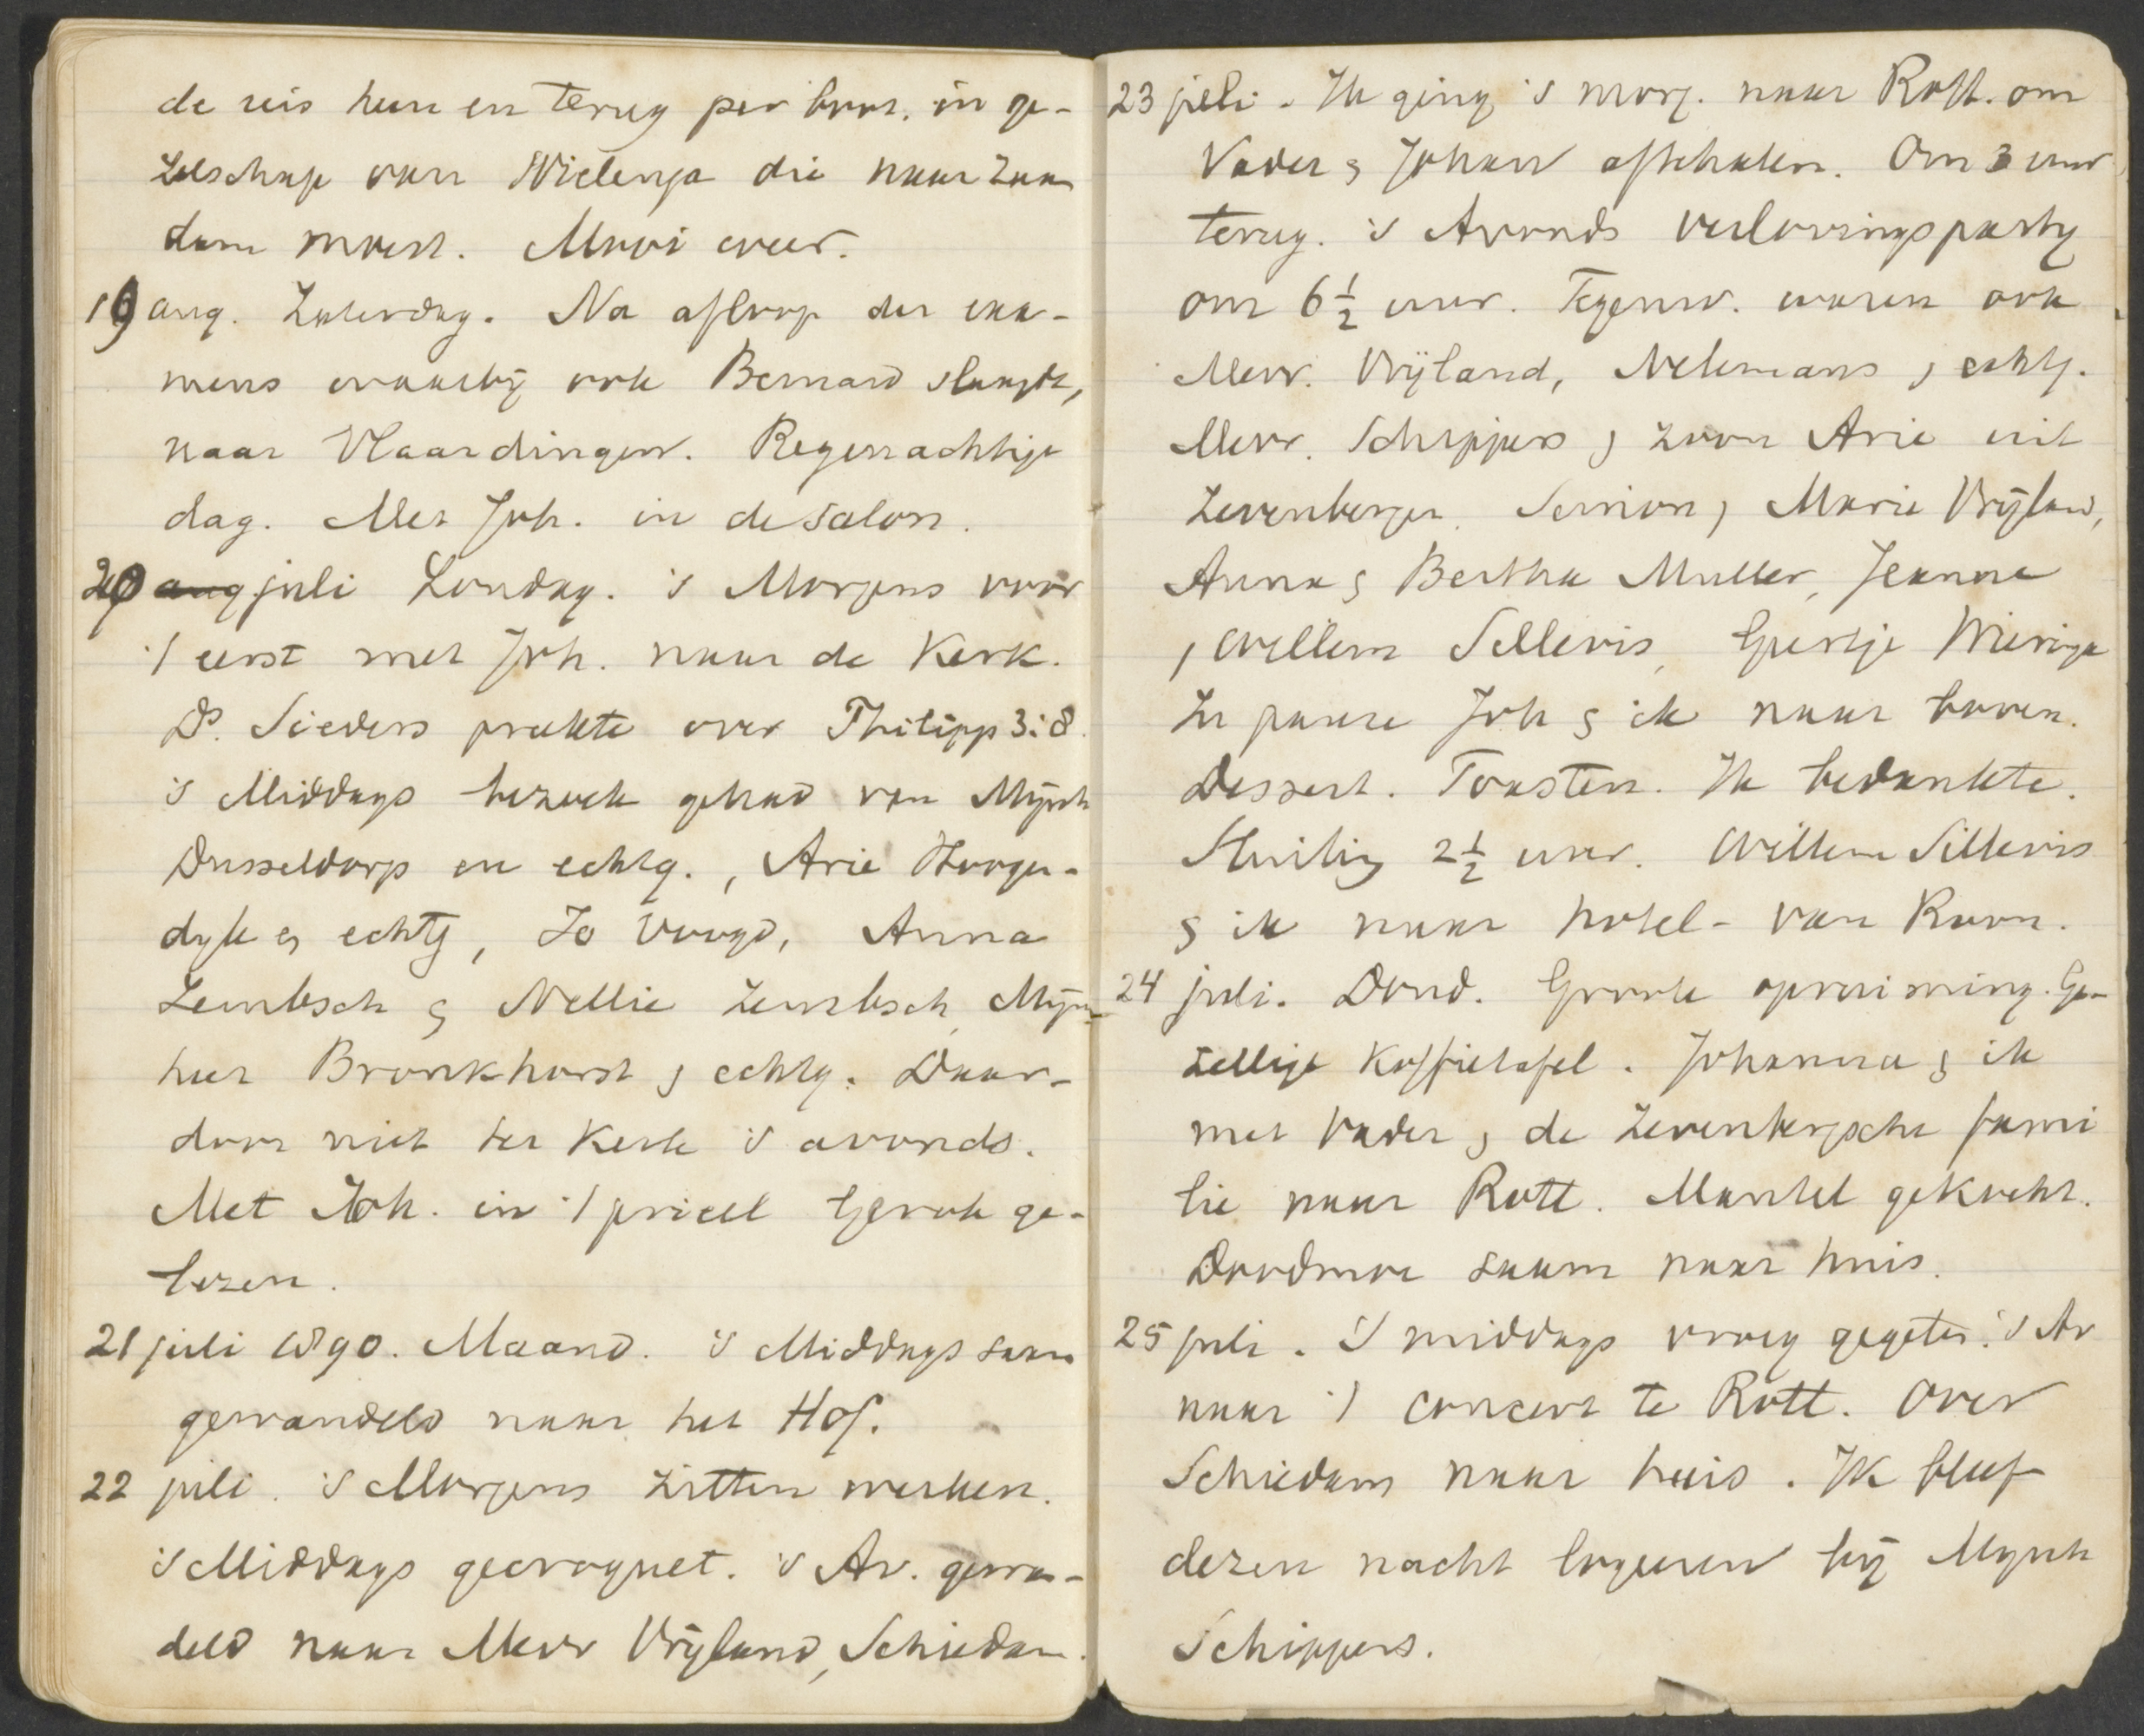 de reis heen en terug per boot. in ge-
zelschap van Wielenga die naar Zaan
dam moest. Mooi weer.
19 aug. Zaterdag. Na afloop der exa-
mens waarbij ook Bernard slaagde,
naar Vlaardingen. Regenachtige
dag. Met Joh. in de salon.
20 aug juli Zondag. 's Morgens voor
't eerst met Joh. naar de Kerk.
Ds. Sieders preekte over Philipp 3:8.
's Middags bezoek gehad van Mijnh
Dusseldorp en echtg., Arie Hoogen-
dyk & echtg, Jo Voogd, Anna
Zembsch & Nellie Zembsch, Mijn-
heer Bronkhorst & echtg. Daar-
door niet ter Kerk 's avonds.
Met Joh. in 't prieel Gerok ge-
lezen.
21 juli 1890. Maand. 's Middags saam
gewandeld naar het Hof.
22 juli. 's Morgens zitten werken.
's Middags gecroquet. 's Av. gewan-
deld naar Mevr Vrijland, Schiedam.
23 juli - Ik ging 's morg. naar Rott. om
Vader & Johan afhalen. Om 3 uur
terug. 's Avonds verlovingsparty
om 6 1/2 uur. Tegenw. waren ook
Mevr. Vrijland, Nelemans & echtg.
Mevr. Schippers & zoon Arie uit
Zevenbergen. Semion & Marie Vrijland,
Anna & Bertha Muller, Jeanne
& Willem Sillevis, Geertje Wieringa
In pauze Joh & ik naar boven.
Dessert. Toasten. Ik bedankte.
Sluiting 2 1/2 uur. Willem Sillevis
& ik naar hotel - van Roon.
24 juli. Dond. Groote opruiming. Ge-
zellige Koffietafel. Johanna & ik
met Vader & de Zevenbergsche fami
lie naar Rott. Mantel gekocht.
Doodmoe saam naar huis.
25 juli. 's middags vroeg gegeten. 's Av
naar 't concert te Rott. Over
Schiedam naar huis. Ik bleef
dezen nacht logeeren bij Mynh
Schippers.